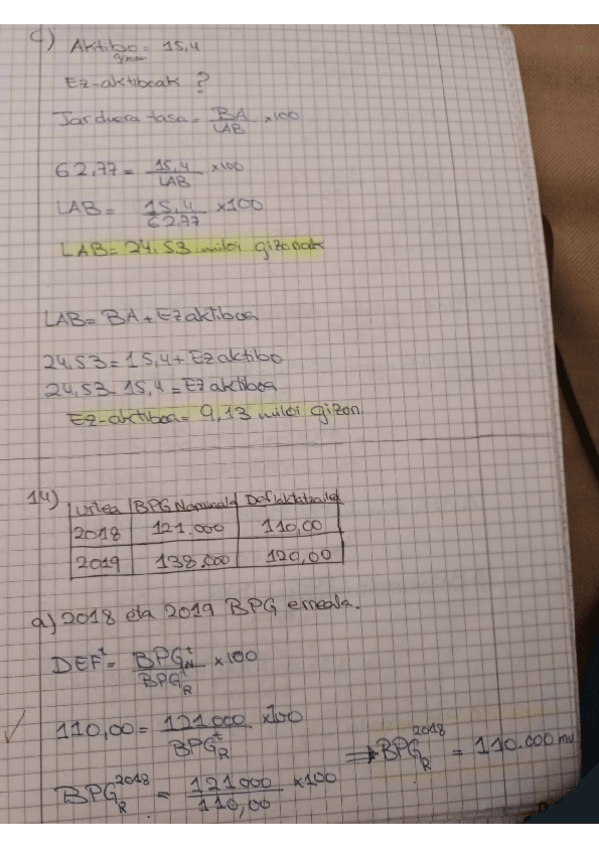 c) Aktibo = 15,4
gizon
Ez-aktiboak ?
Jarduera tasa = BA/LAB ×100
62,77 = 15,4/LAB ×100
LAB = 15,4/62,77 ×100
LAB = 24,53 miloi gizonak
LAB = BA + Ez aktiboa
24,53 = 15,4 + Ez aktibo
24,53 - 15,4 = Ez aktiboa
Ez-aktiboa = 9,13 miloi gizon.
14) Urtea BPG Nominala Deflaktatzailea
2018 121.000 110,00
2019 138.000 120,00
a) 2018 eta 2019 BPG erreala.
DEF^t = BPG_N^t/BPG_R^t ×100
110,00 = 121.000/BPG_R^t ×100
BPG_R^2018 = 121000/110,00 ×100 ⇒ BPG_R^2018 = 110.000 mu